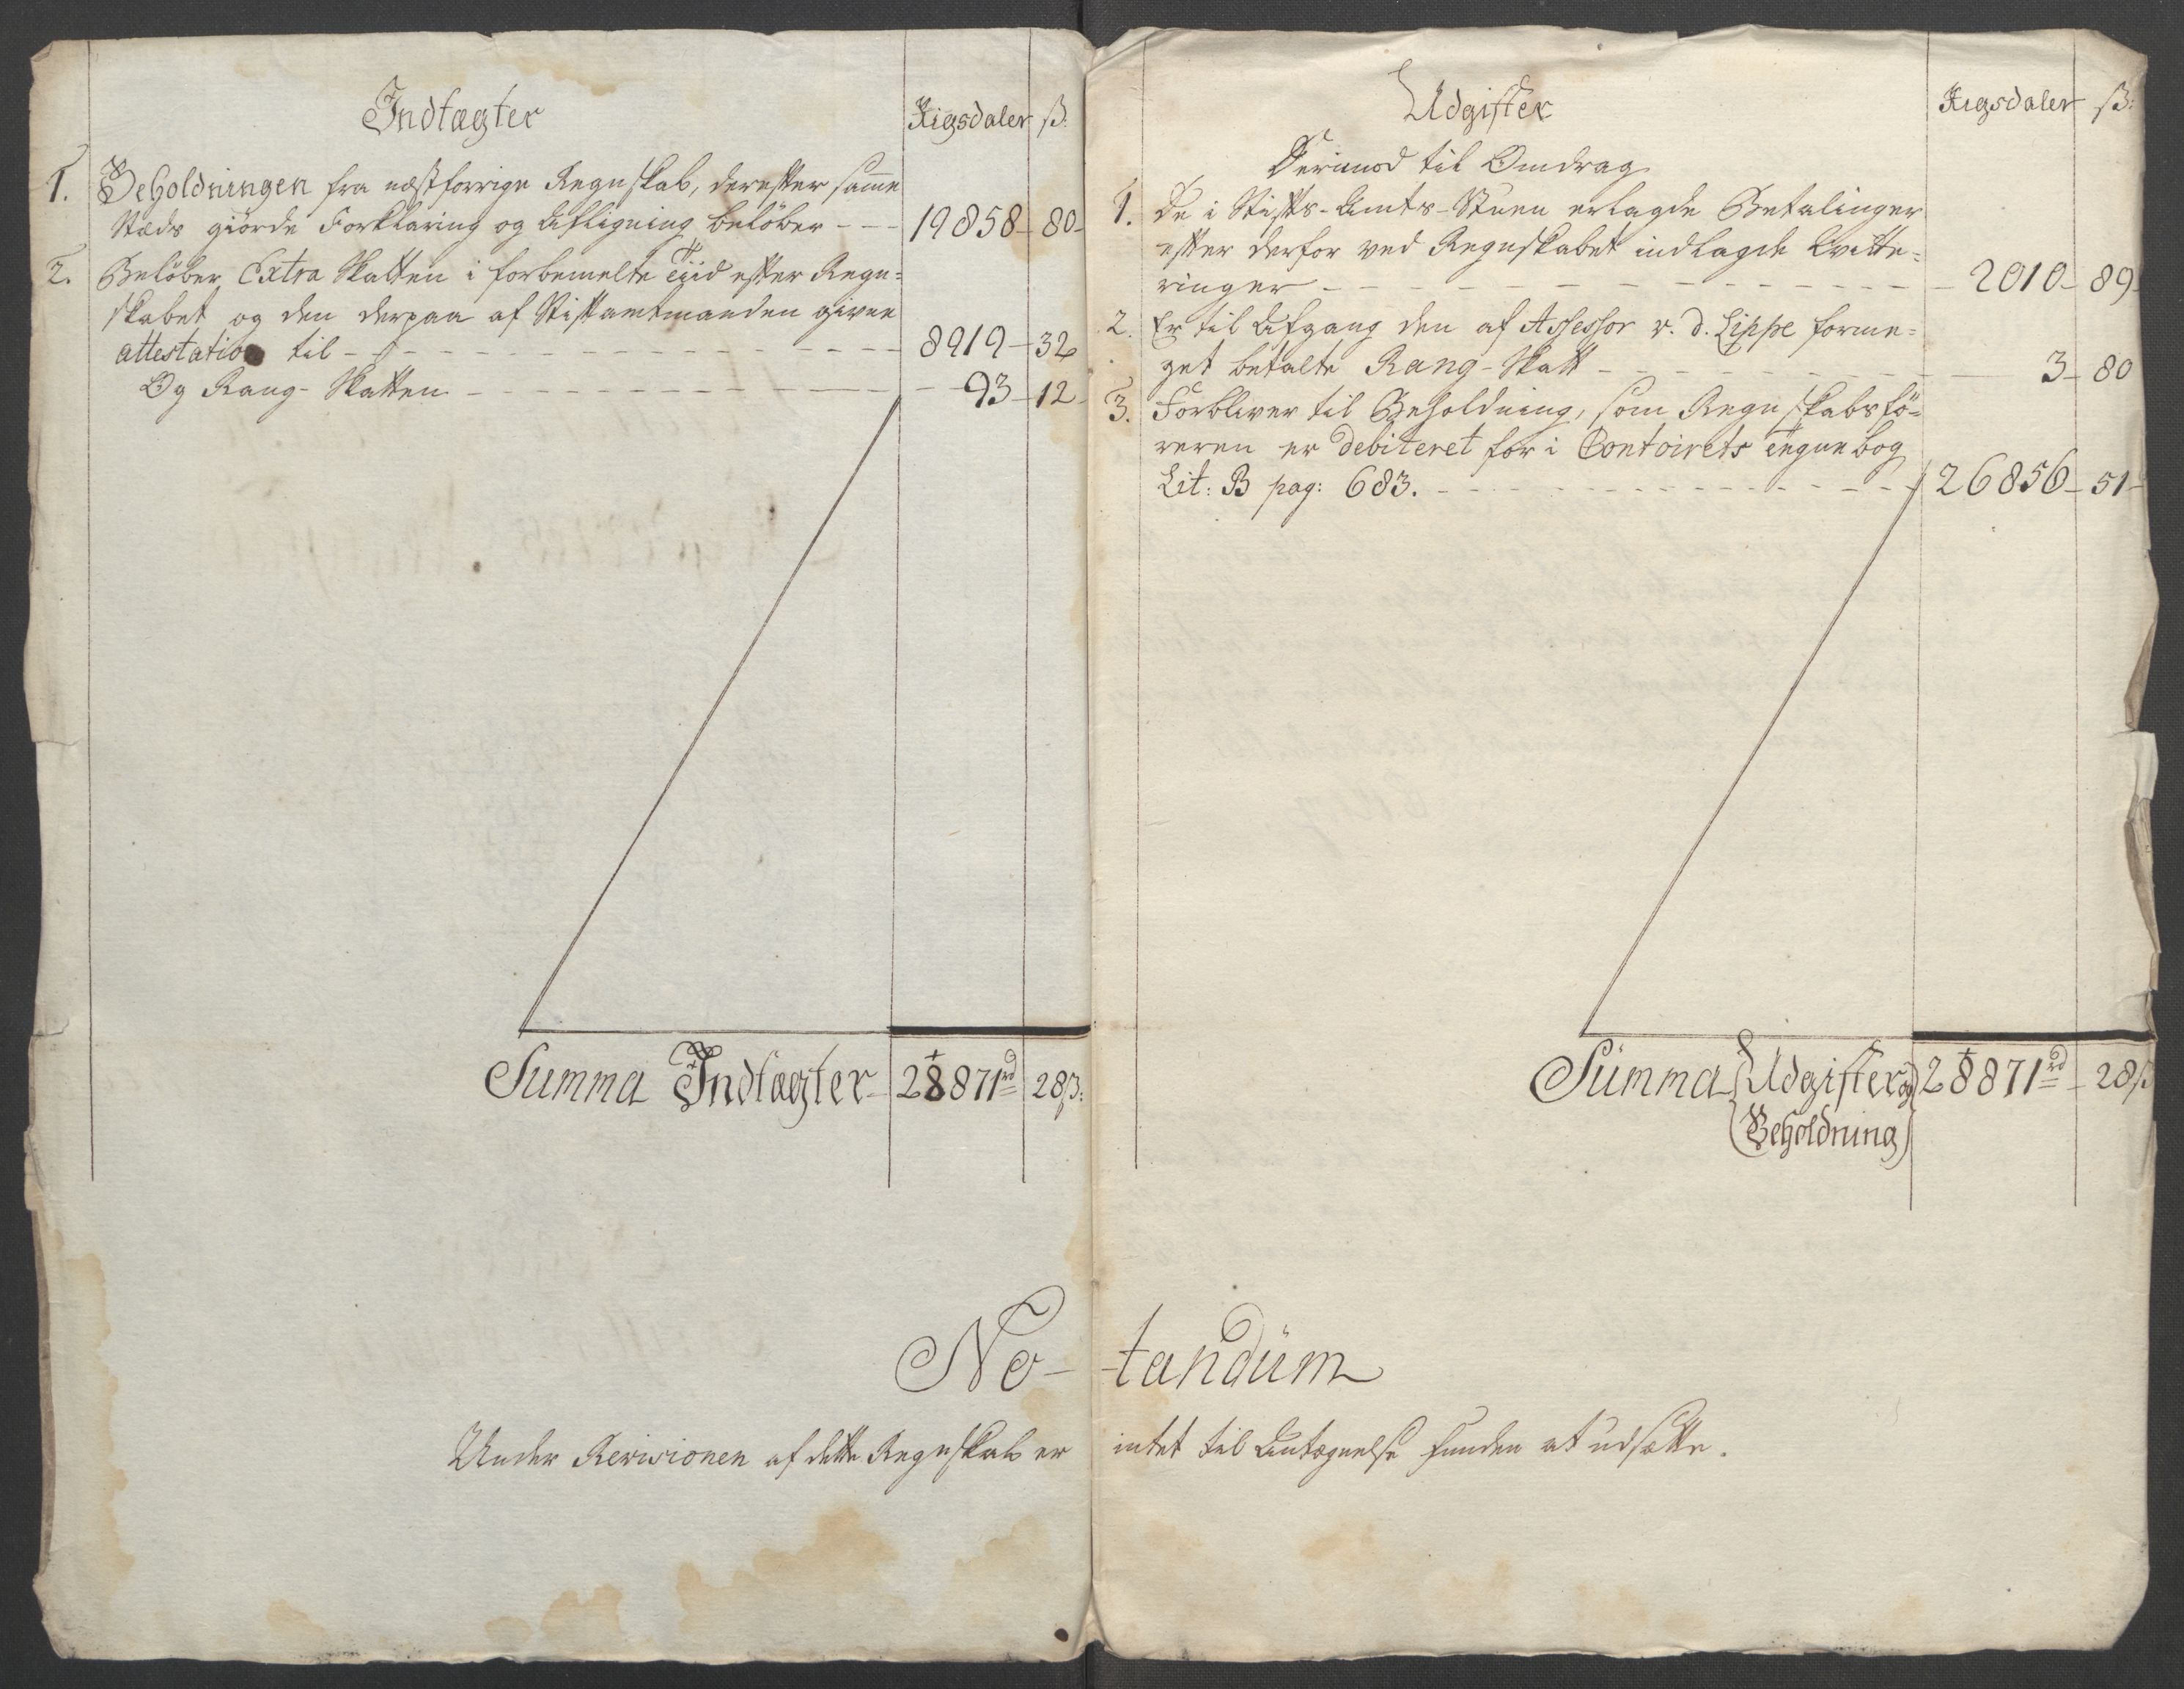 Indtægter
Rigsdaler ß:
1. Beholdningen fra næstforrige Regnskab, derefter samme
Stæds giorde Forklaring og Afligning belöber - - - 19858 - 80 -
2. Belöber Extra Skatten i forbemelte Tiid efter Regn=
skabet og den derpaa af Stiftamtmanden given
attestation til - - - 8919 - 32
Og Rang-Skatten - - - 93 - 12 -
Summa Indtægter - 28871 rd 28 ß:
Udgifter
Rigsdaler ß:
Derimod til Omdrag
1. De i Stifts-Amts-Stuen erlagde Betalinger
efter derfor ved Regnskabet indlagde Qvitte=
ringer - - - 2010 - 89 -
2. Er til Afgang den af Assessor v. d. Lippe forme=
get betalte Rang-Skatt - - - 3 - 80
3. Forbliver til Beholdning, som Regnskabsfö=
reren er debiteret for i Contoirets Tegnebog
Lit: B pag: 683. - - - 26856 - 51 -
Summa Udgifter og 28871 rd - 28 ß
Beholdning
No- -tandum
Under Revisionen af dette Regnskab er intet til Antegnelse funden at udsætte.